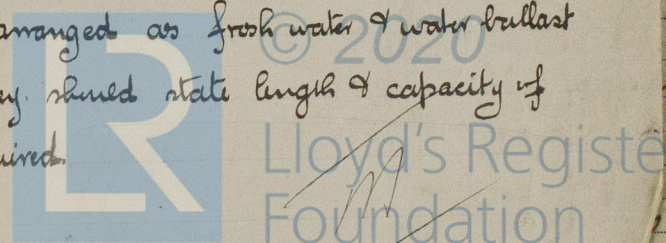 arranged as fresh water & water ballast
© 2020
ey. should state length & capacity of
uired.
LR
Lloyd's Registe
Foundation